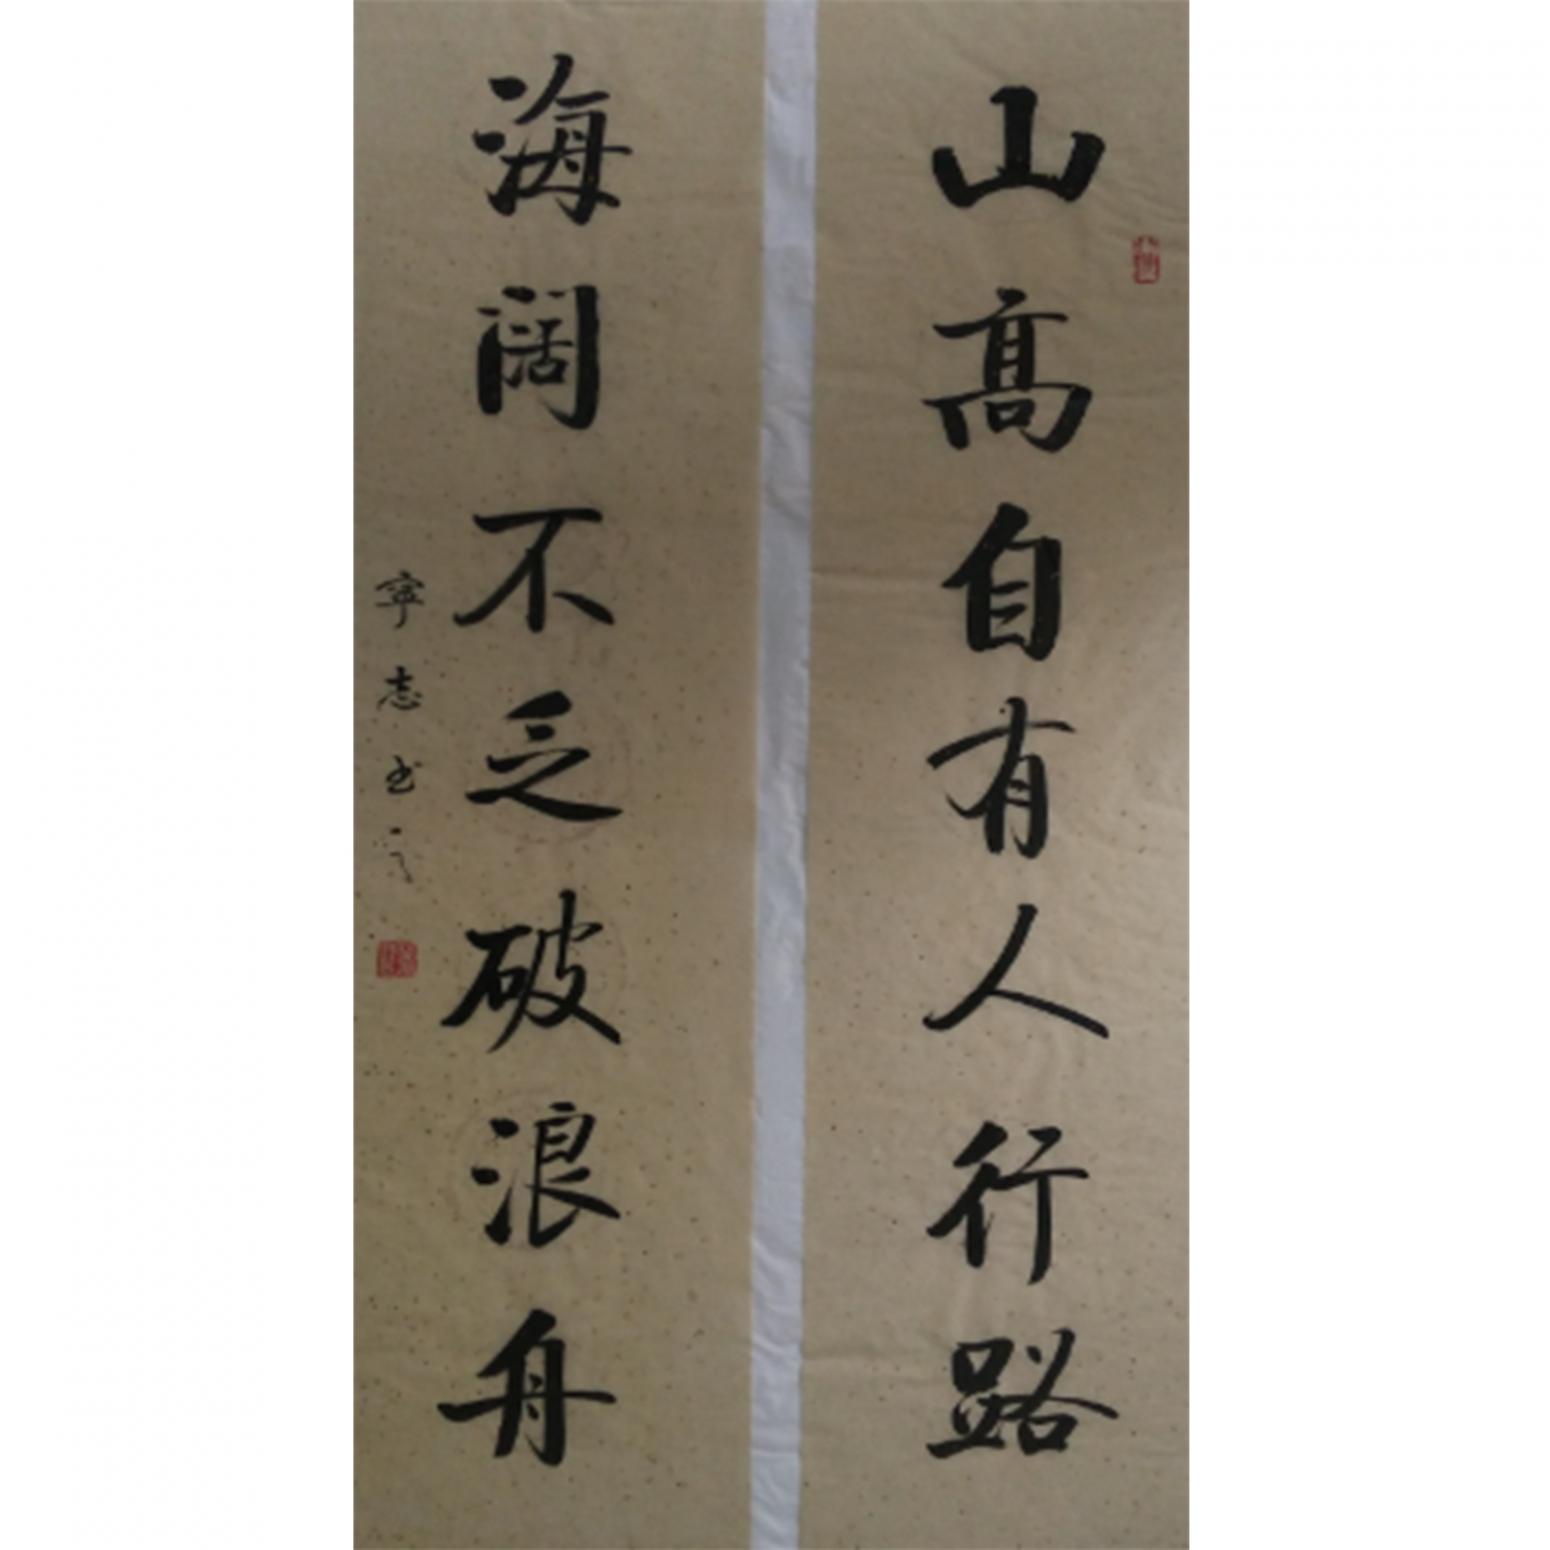 山高自有人行路
海阔不乏破浪舟
寧志书